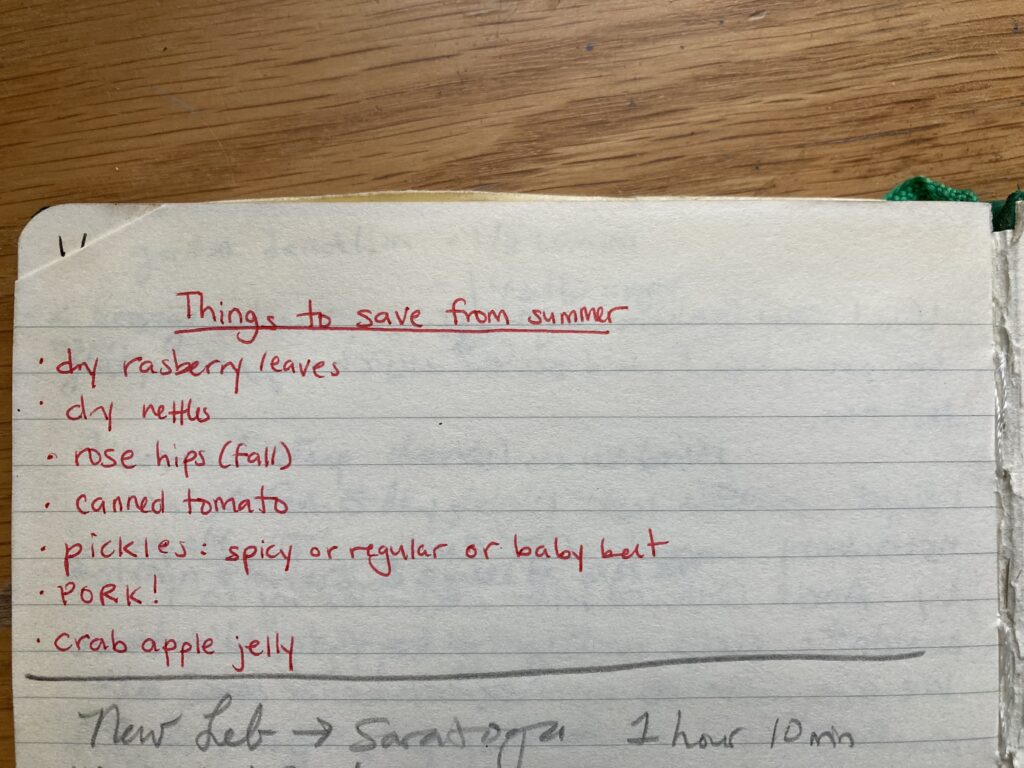 Things to save from summer
· dry rasberry leaves
· dry nettles
· rose hips (fall)
· canned tomato
· pickles: spicy or regular or baby beet
· PORK!
· crab apple jelly
New Leb → Saratoga 1 hour 10 min